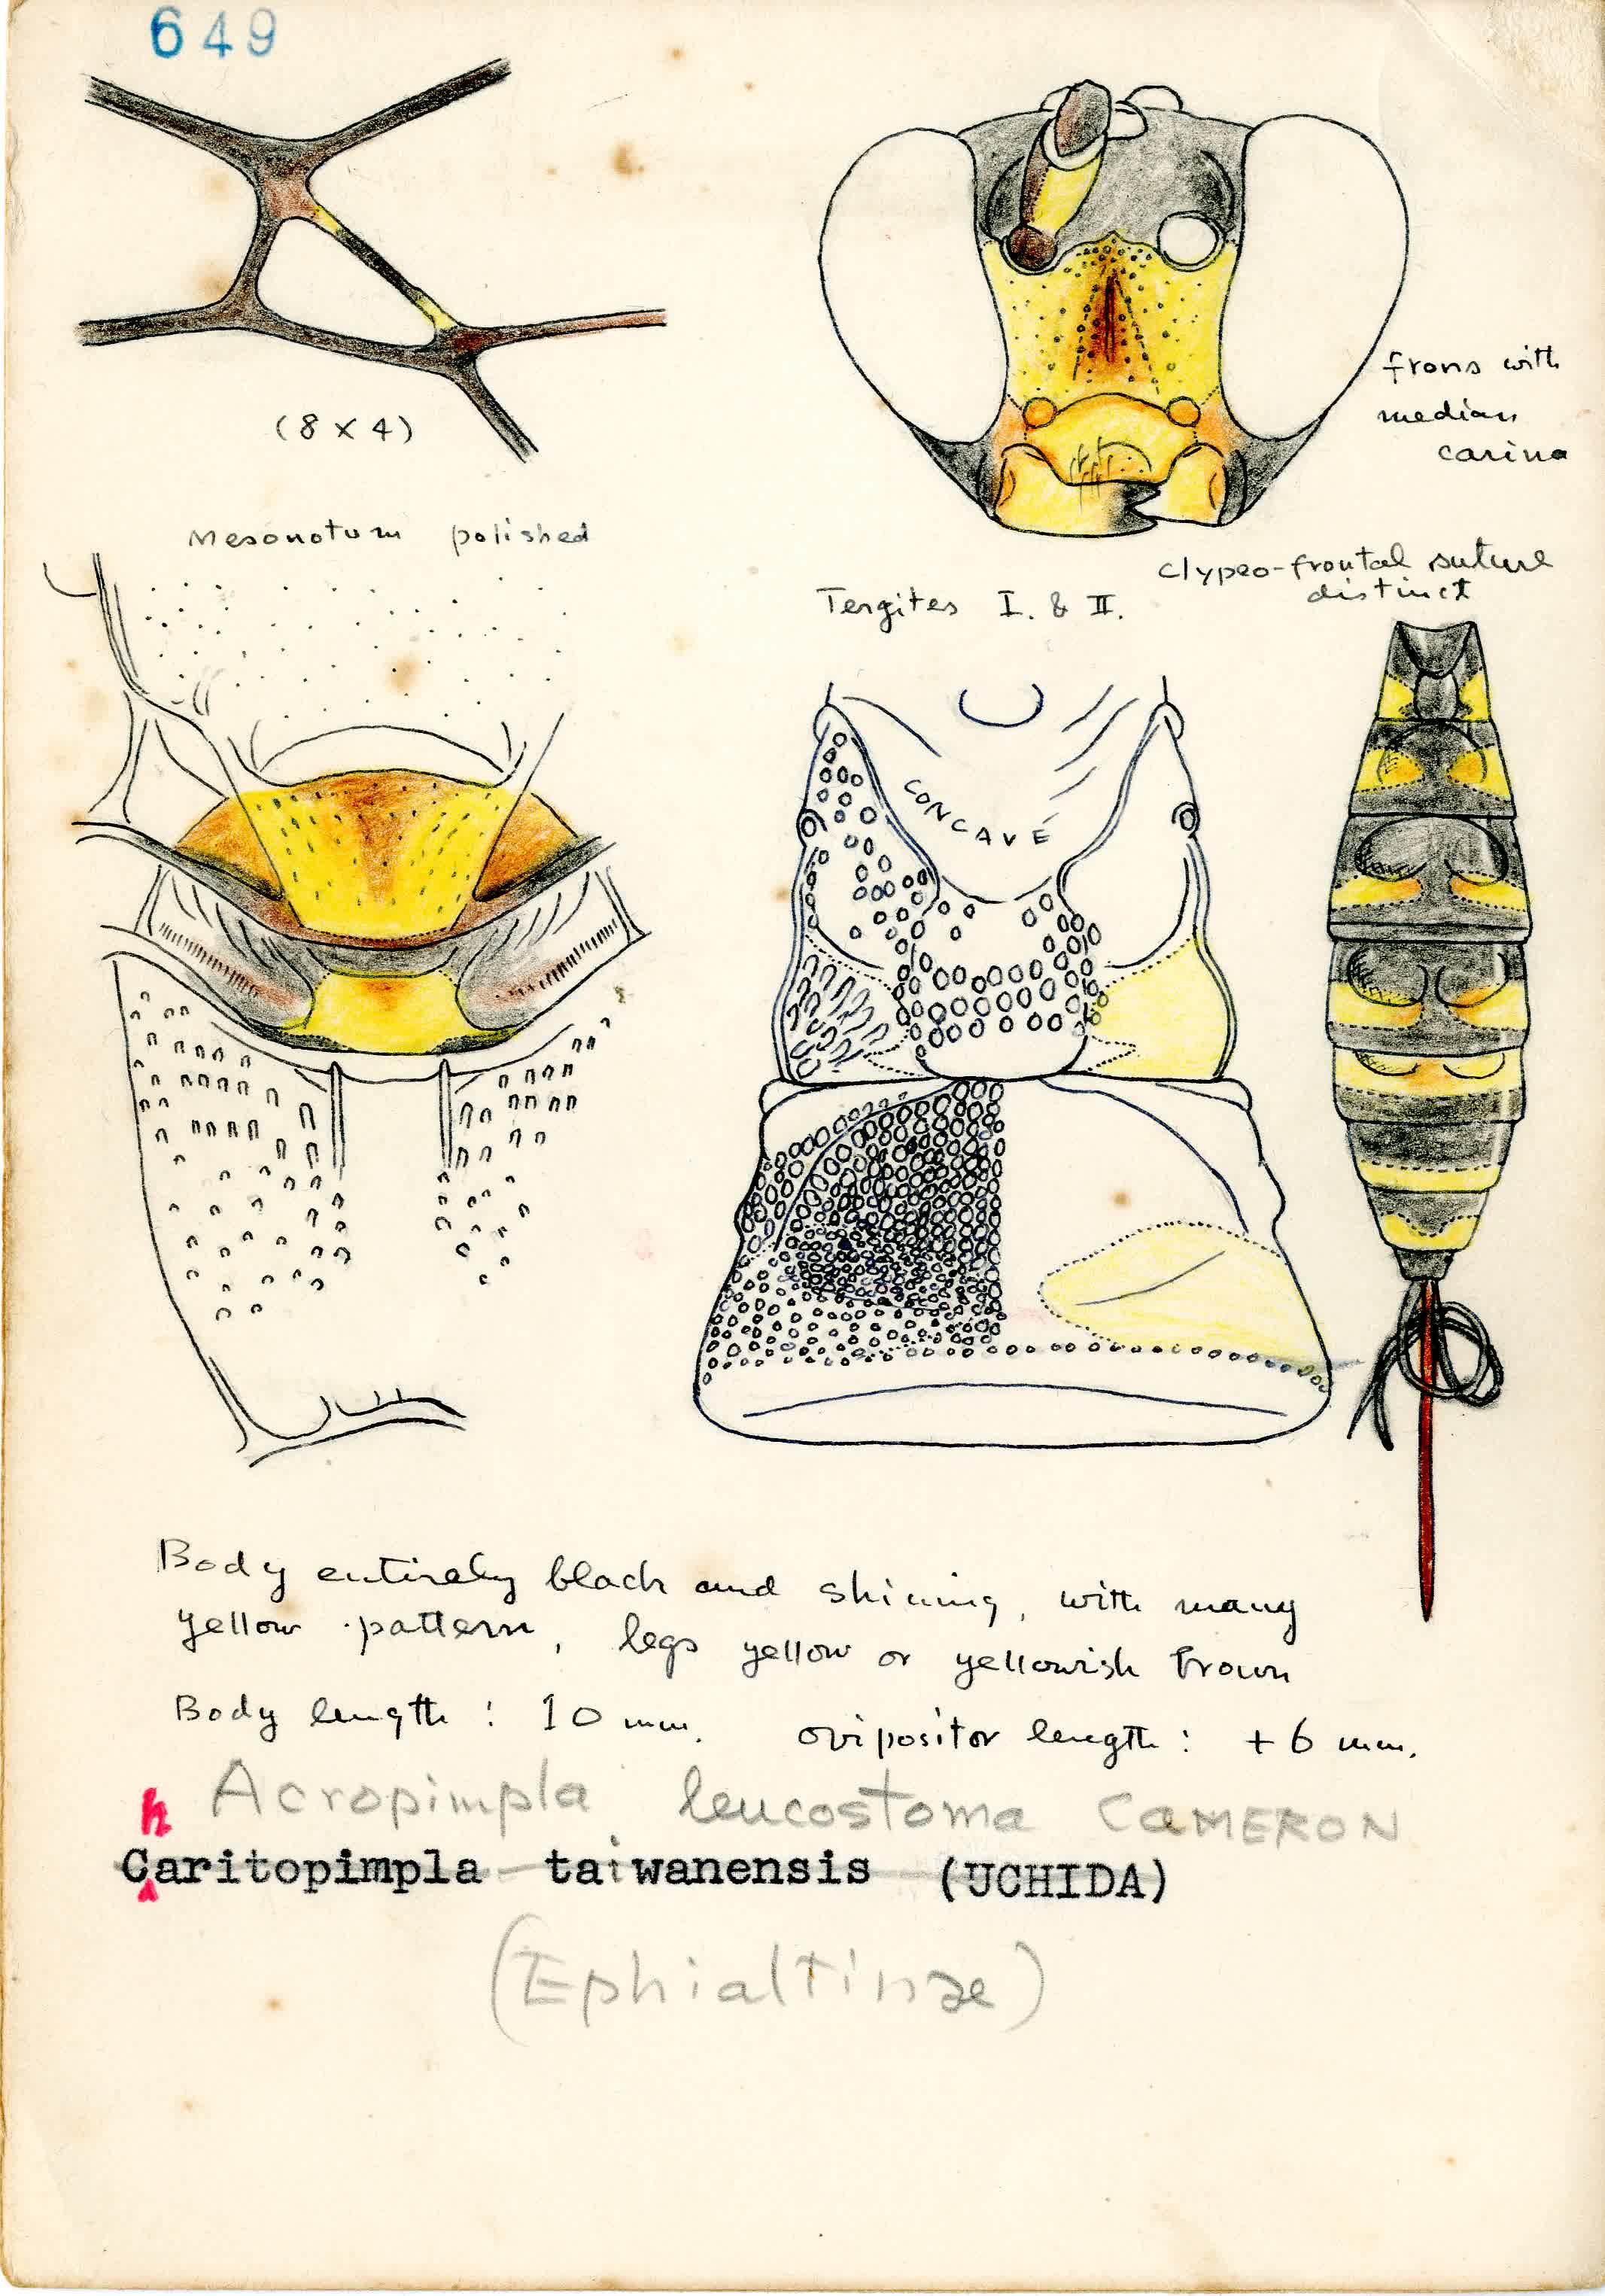 649
(8 X 4)
frons with
median
carina
Mesonotum polished
clypeo-frontal suture
distinct
Tergites I. & II.
CONCAVE
Body entirely black and shining, with many
yellow pattern, legs yellow or yellowish brown
Body length : 10 mm. ovipositor length : +6 mm.
h Acropimpla leucostoma CAMERON
Caritopimpla taiwanensis (UCHIDA)
(Ephialtinae)